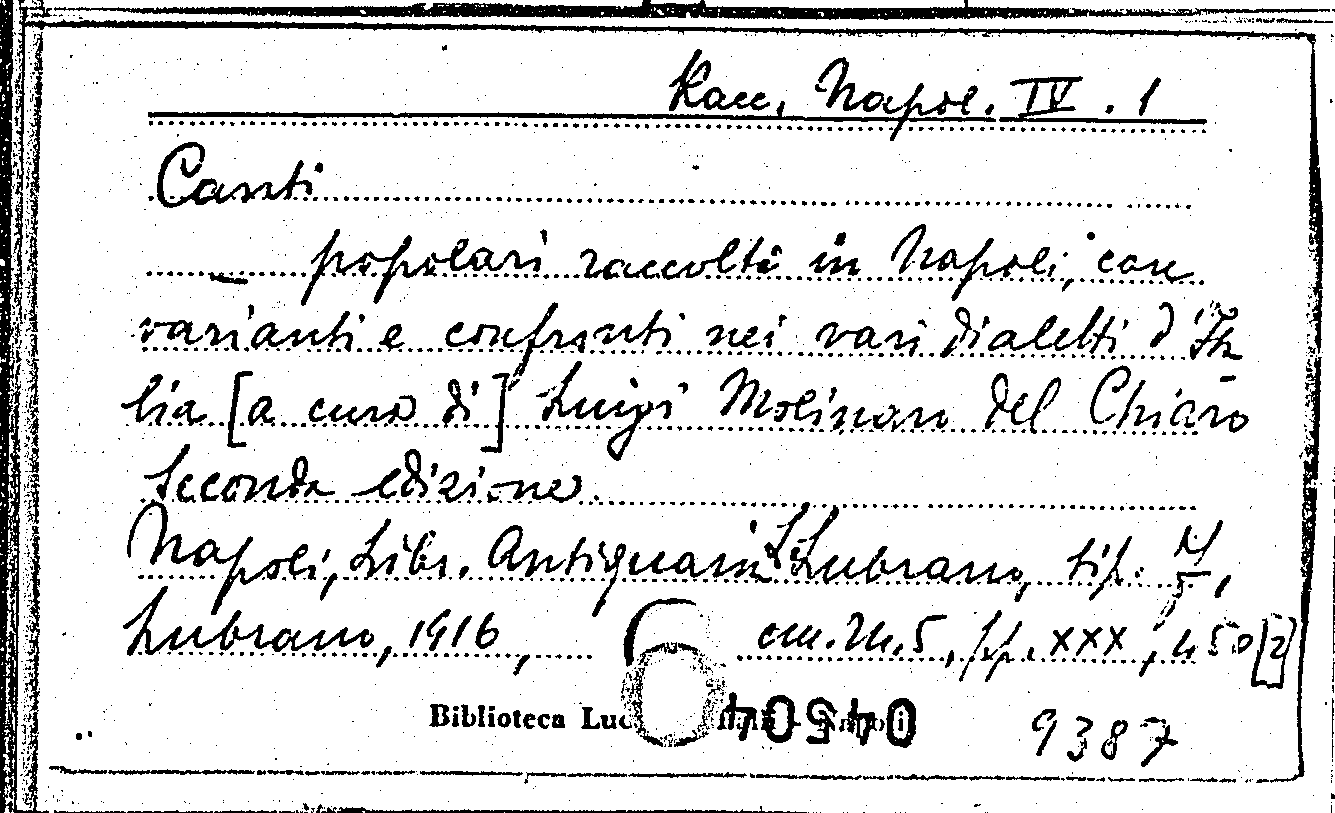 Racc. Napol. IV. 1
Canti
popolari raccolti in Napoli, con
varianti e confronti nei vari dialetti d'Ita
lia [a cura di] Luigi Molinaro del Chiaro
Seconda edizione.
Napoli, Libr. Antiquaria L. Lubrano, tip.
Lubrano, 1916, cm. 24.5, pp. XXX, 450 [2]
Biblioteca
04504
9387